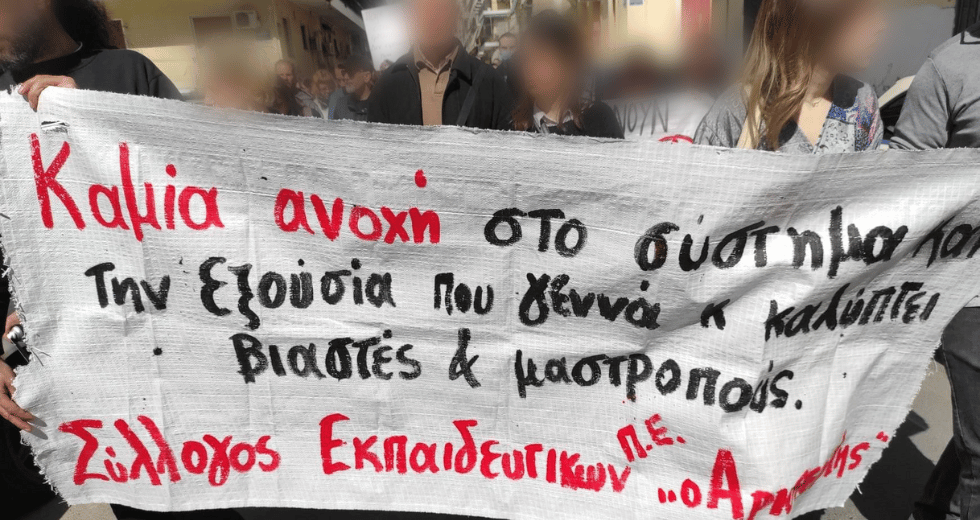 Καμία ανοχή στο σύστημα και
την εξουσία που γεννάι κ καλύπτει
βιαστές & μαστροπούς.
Σύλλογος Εκπαιδευτικών Π.Ε.
"ο Αρ